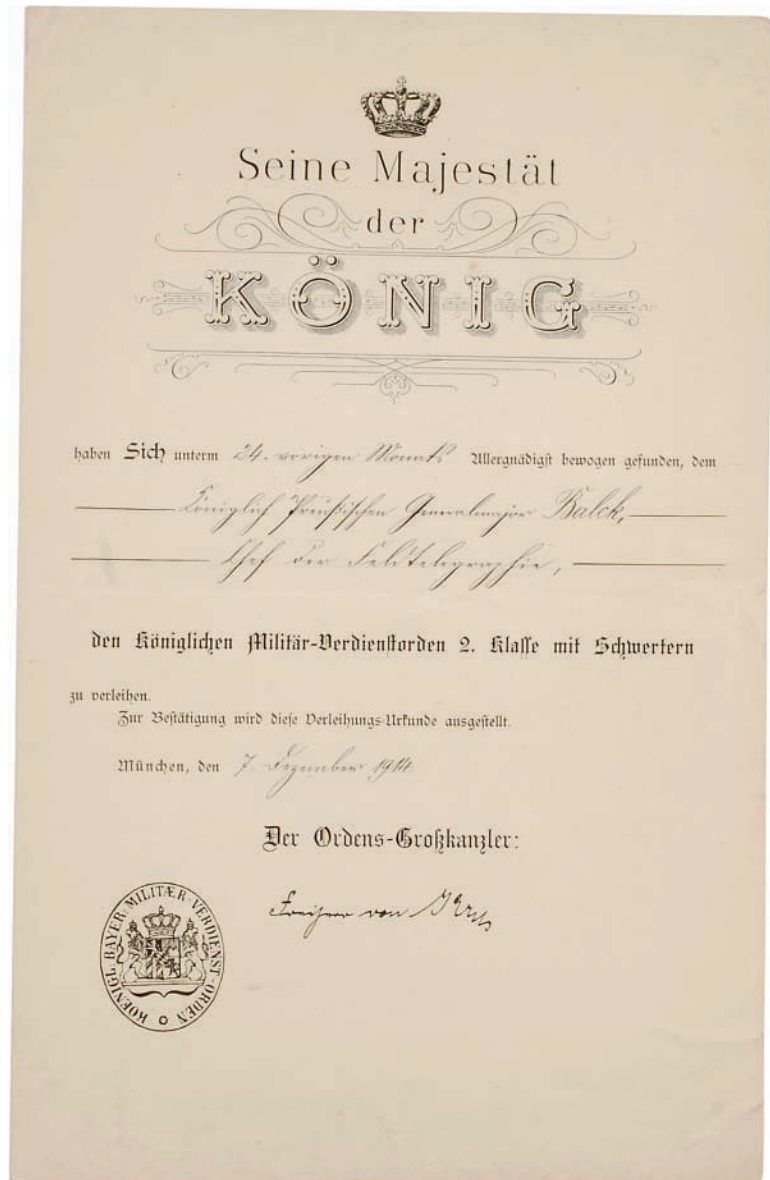 Seine Majestät
der
KÖNIG
haben Sich unterm 24. vorigen Monats Allergnädigst bewogen gefunden, dem
Königlich Preußischen Generalmajor Balck,
Chef der Feldtelegraphie,
den Königlichen Militär-Verdienstorden 2. Klasse mit Schwertern
zu verleihen.
Zur Bestätigung wird diese Verleihungs-Urkunde ausgestellt.
München, den 7. Dezember 1914
Der Ordens-Großkanzler:
Freiherr von
KOENIGL. BAYER. MILITÆR-VERDIENST-ORDEN